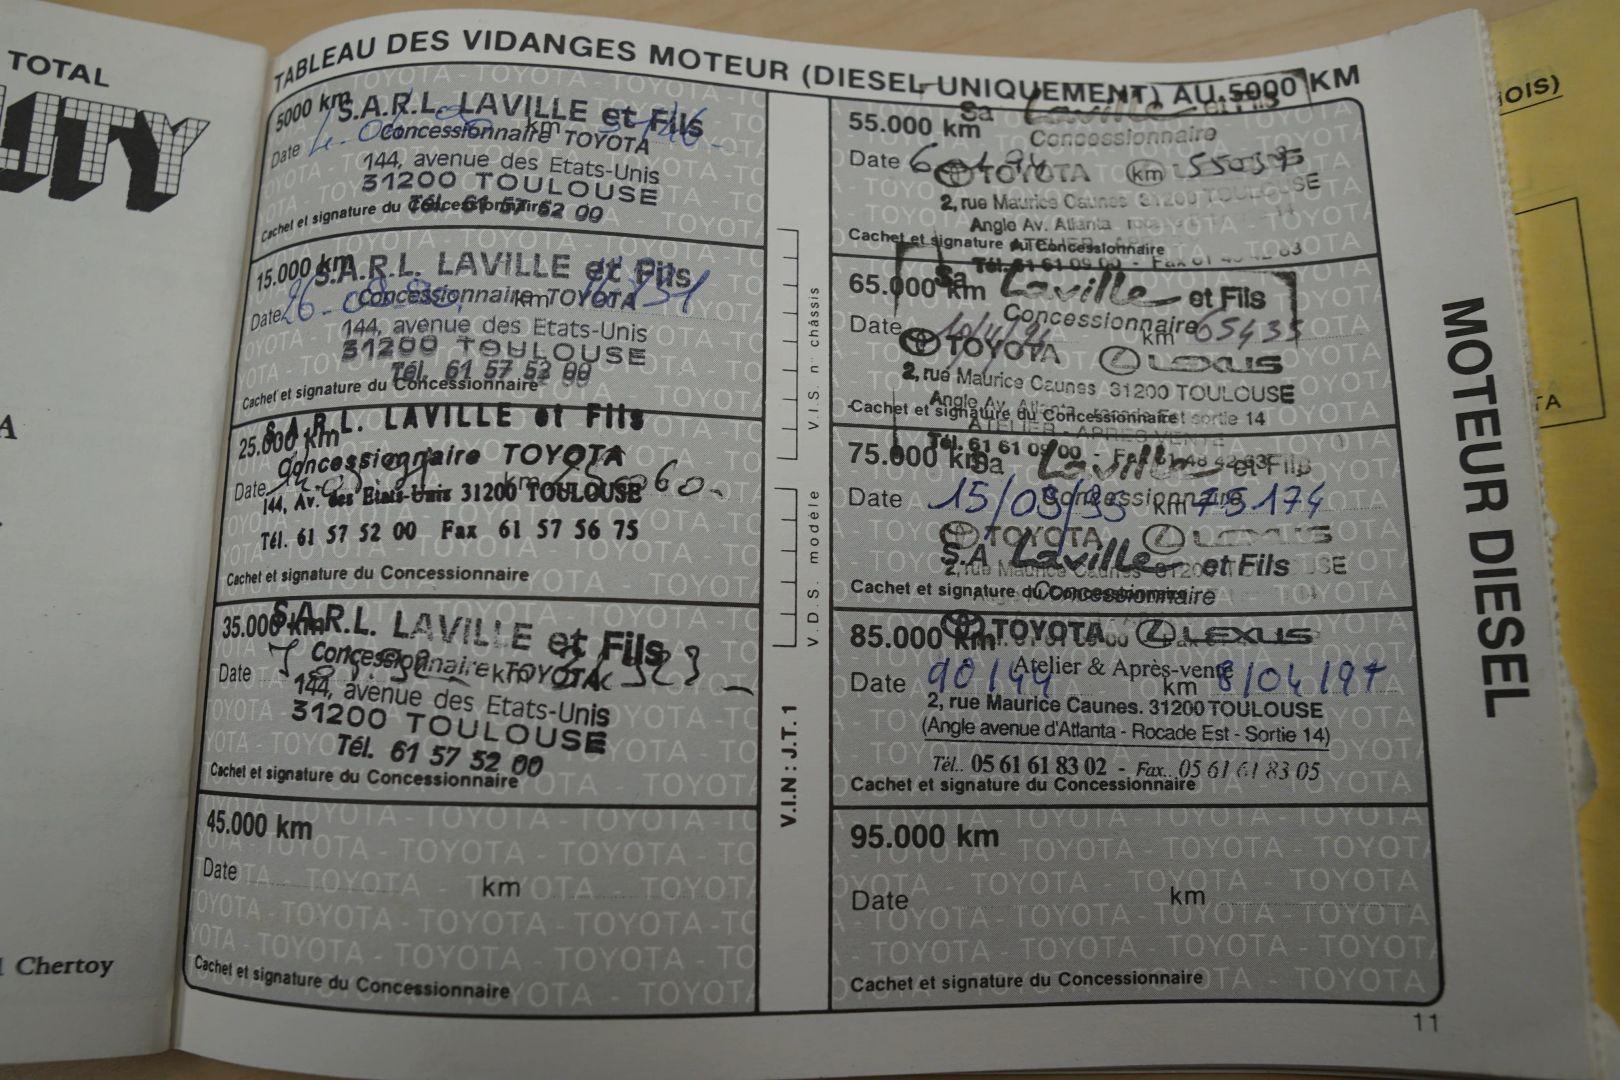 TOTAL
A
Chertoy
TABLEAU DES VIDANGES MOTEUR (DIESEL UNIQUEMENT) AU 5000 KM
5000 km
S.A.R.L. LAVILLE et Fils
Concessionnaire TOYOTA
Date
km
144, avenue des Etats-Unis
31200 TOULOUSE
Tél. 61 57 52 00
Cachet et signature du Concessionnaire
15.000 km
S.A.R.L. LAVILLE et Fils
Concessionnaire TOYOTA
Date
km
144, avenue des Etats-Unis
31200 TOULOUSE
Tél. 61 57 52 00
Cachet et signature du Concessionnaire
25.000 km
S.A.R.L. LAVILLE et Fils
Concessionnaire TOYOTA
Date
km
144, Av. des Etats-Unis 31200 TOULOUSE
Tél. 61 57 52 00 Fax 61 57 56 75
Cachet et signature du Concessionnaire
35.000 km
S.A.R.L. LAVILLE et Fils
Concessionnaire TOYOTA
Date
km
144, avenue des Etats-Unis
31200 TOULOUSE
Tél. 61 57 52 00
Cachet et signature du Concessionnaire
45.000 km
Date
km
Cachet et signature du Concessionnaire
V.I.N : J.T. 1
V.D.S. modèle
V.I.S. n° châssis
55.000 km
Sa Laville et Fils
Concessionnaire
Date
TOYOTA
km
2, rue Maurice Caunes 31200 TOULOUSE
Angle Av. Atlanta
Cachet et signature du Concessionnaire
Tél. 61 61 09 00
65.000 km
Sa Laville et Fils
Concessionnaire
Date
km 65435
TOYOTA LEXUS
2, rue Maurice Caunes 31200 TOULOUSE
Angle Av. Atlanta sortie 14
Cachet et signature du Concessionnaire
ATELIER - APRES-VENTE
Tél. 61 61 09 00
75.000 km
Sa Laville et Fils
Concessionnaire
Date 15/03/95 km 75174
TOYOTA LEXUS
Cachet et signature du Concessionnaire
S.A. Laville et Fils
Concessionnaire
85.000 km
TOYOTA LEXUS
Atelier & Après-vente
Date 90144 km 8/04/97
2, rue Maurice Caunes. 31200 TOULOUSE
(Angle avenue d'Atlanta - Rocade Est - Sortie 14)
Tél.. 05 61 61 83 02 - Fax.. 05 61 61 83 05
Cachet et signature du Concessionnaire
95.000 km
Date
km
Cachet et signature du Concessionnaire
11
MOTEUR DIESEL